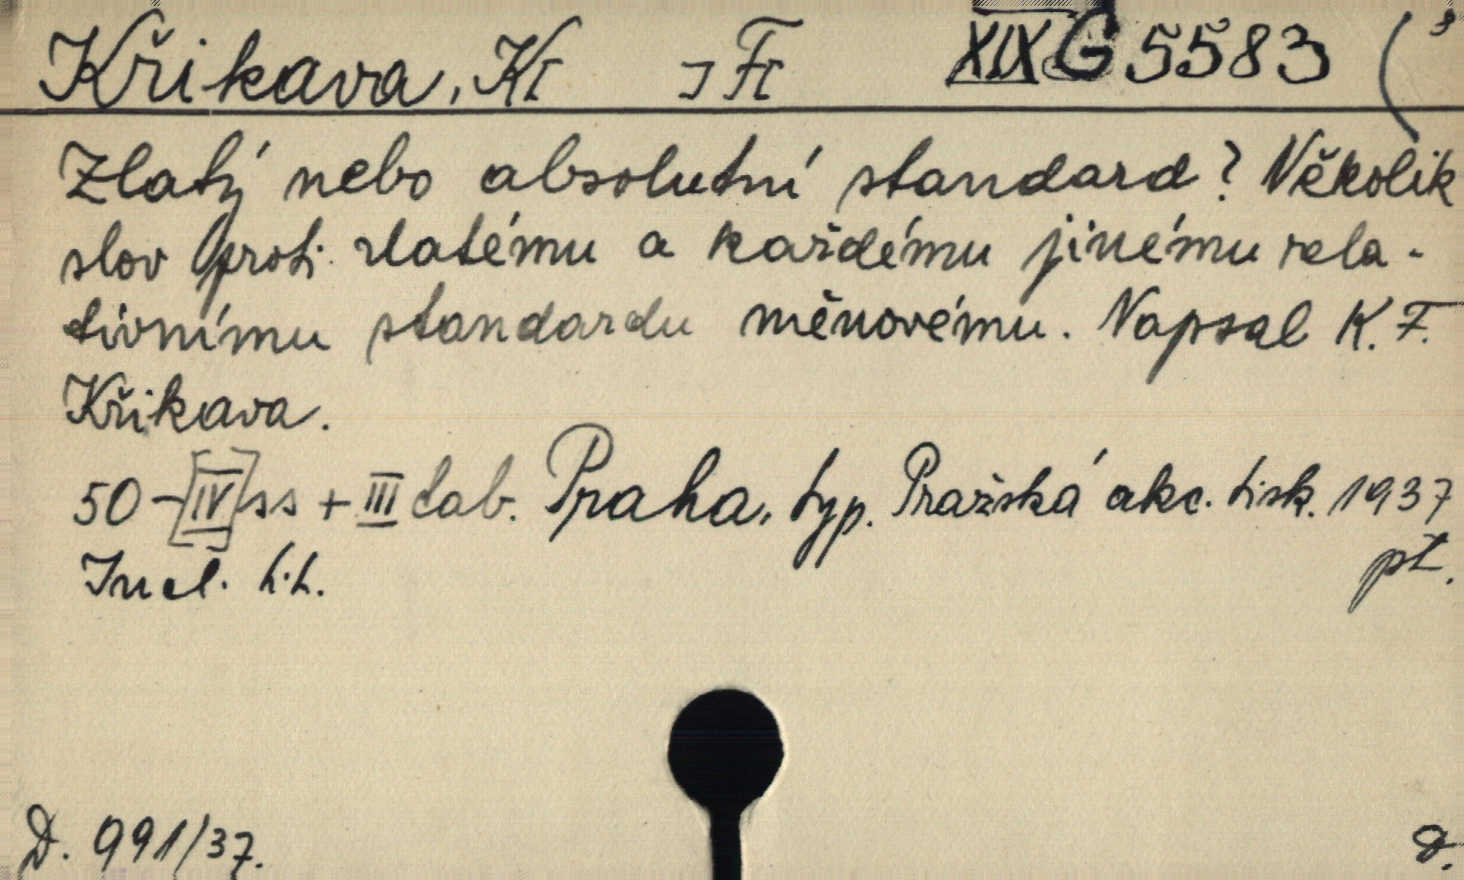 Křikava, K[ ]F[ XIX G 5583 (3
Zlatý nebo absolutní standard? Několik
slov proti zlatému a každému jinému rela-
tivnímu standardu měnovému. Napsal K. F.
Křikava.
50-[IV] ss + III tab. Praha, typ. Pražská akc. tisk. 1937
Incl. t.t. pt.
D. 991/37. D.